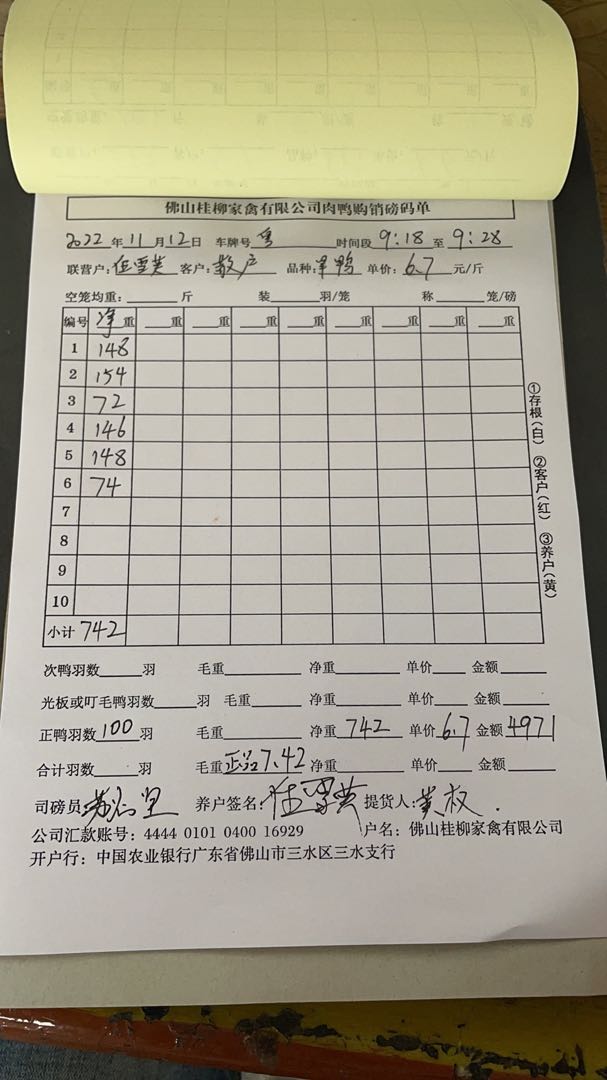 佛山桂柳家禽有限公司肉鸭购销磅码单
2022年11月12日 车牌号 粤 时间段 9:18 至 9:28
联营户: 伍雪芳 客户: 散户 品种: 羊鸭 单价: 6.7 元/斤
空笼均重: 斤 装 羽/笼 称 笼/磅
编号 净重 重 重 重 重 重 重 重 重
1 148
2 154
3 72
4 146
5 148
6 74
7
8
9
10
小计 742
①存根(白) ②客户(红) ③养户(黄)
次鸭羽数 羽 毛重 净重 单价 金额
光板或叮毛鸭羽数 羽 毛重 净重 单价 金额
正鸭羽数 100 羽 毛重 净重 742 单价 6.7 金额 4971
合计羽数 羽 毛重 7.42 净重 单价 金额
司磅员: 养户签名: 提货人: 黄叔.
公司汇款账号: 4444 0101 0400 16929 户名: 佛山桂柳家禽有限公司
开户行: 中国农业银行广东省佛山市三水区三水支行